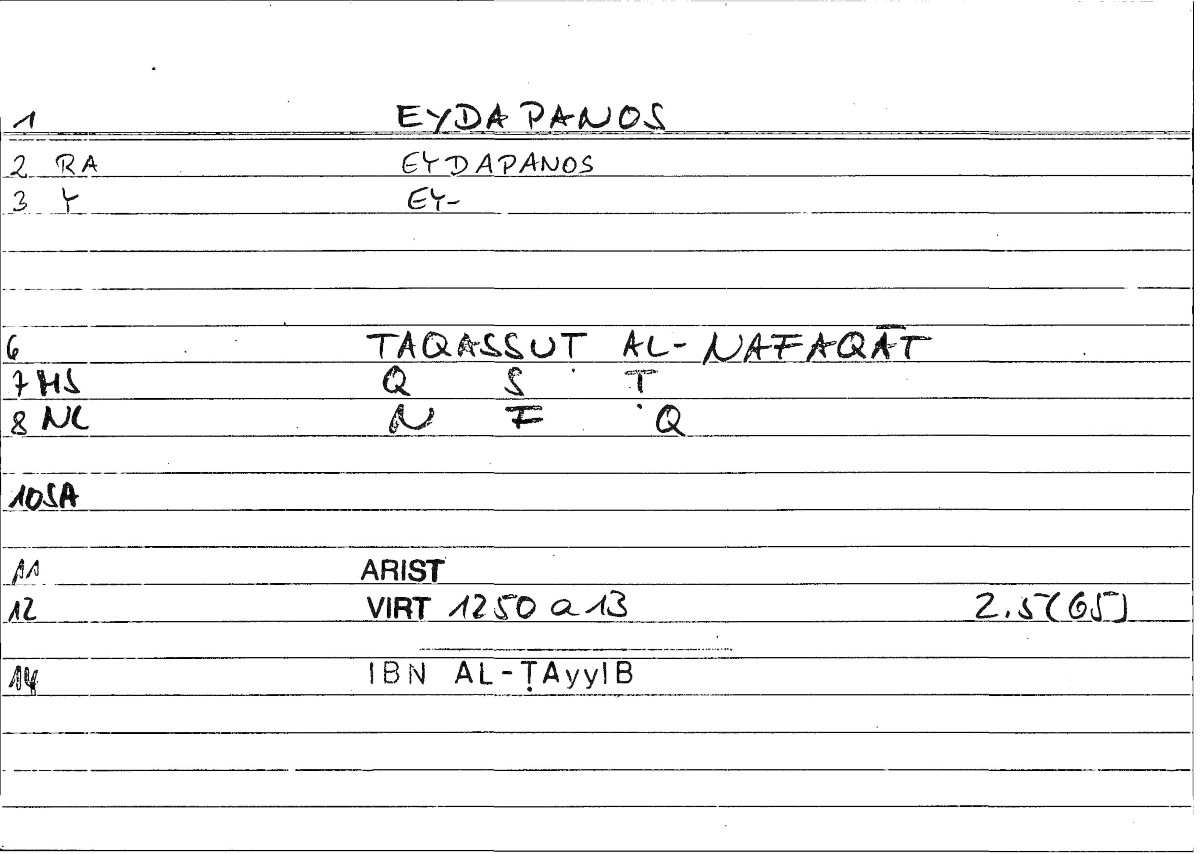 1 EYDAPANOS
2 RA EYDAPANOS
3 Y EY-
6 TAQASSUT AL-NAFAQĀT
7 MS Q S T
8 NL N F Q
10 SA
11 ARIST
12 VIRT 1250 a 13 2.5(65)
14 IBN AL-ṬAyyIB